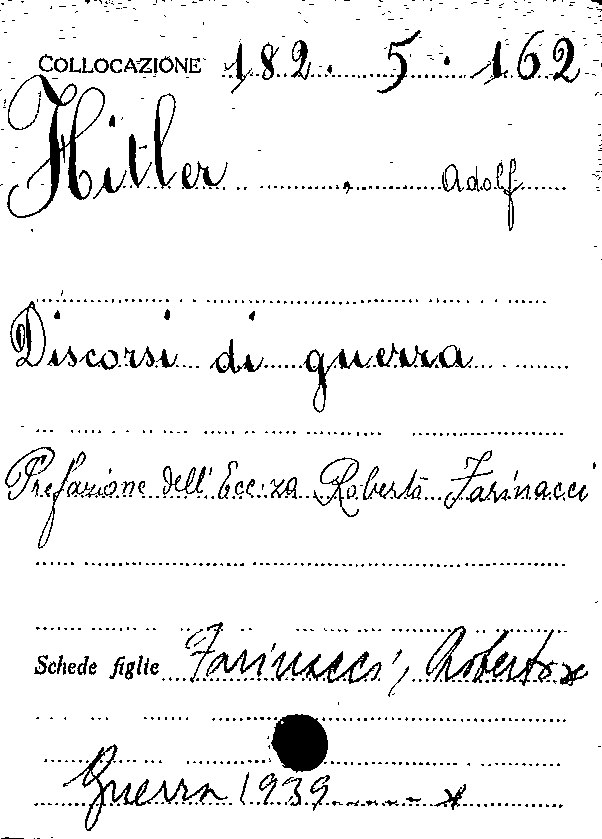 COLLOCAZIONE 182. 5. 162
Hitler , Adolf
Discorsi di guerra
Prefazione dell'Ecc.za Roberto Farinacci
Schede figlie Farinacci, Roberto x
Guerra 1939 ------ x